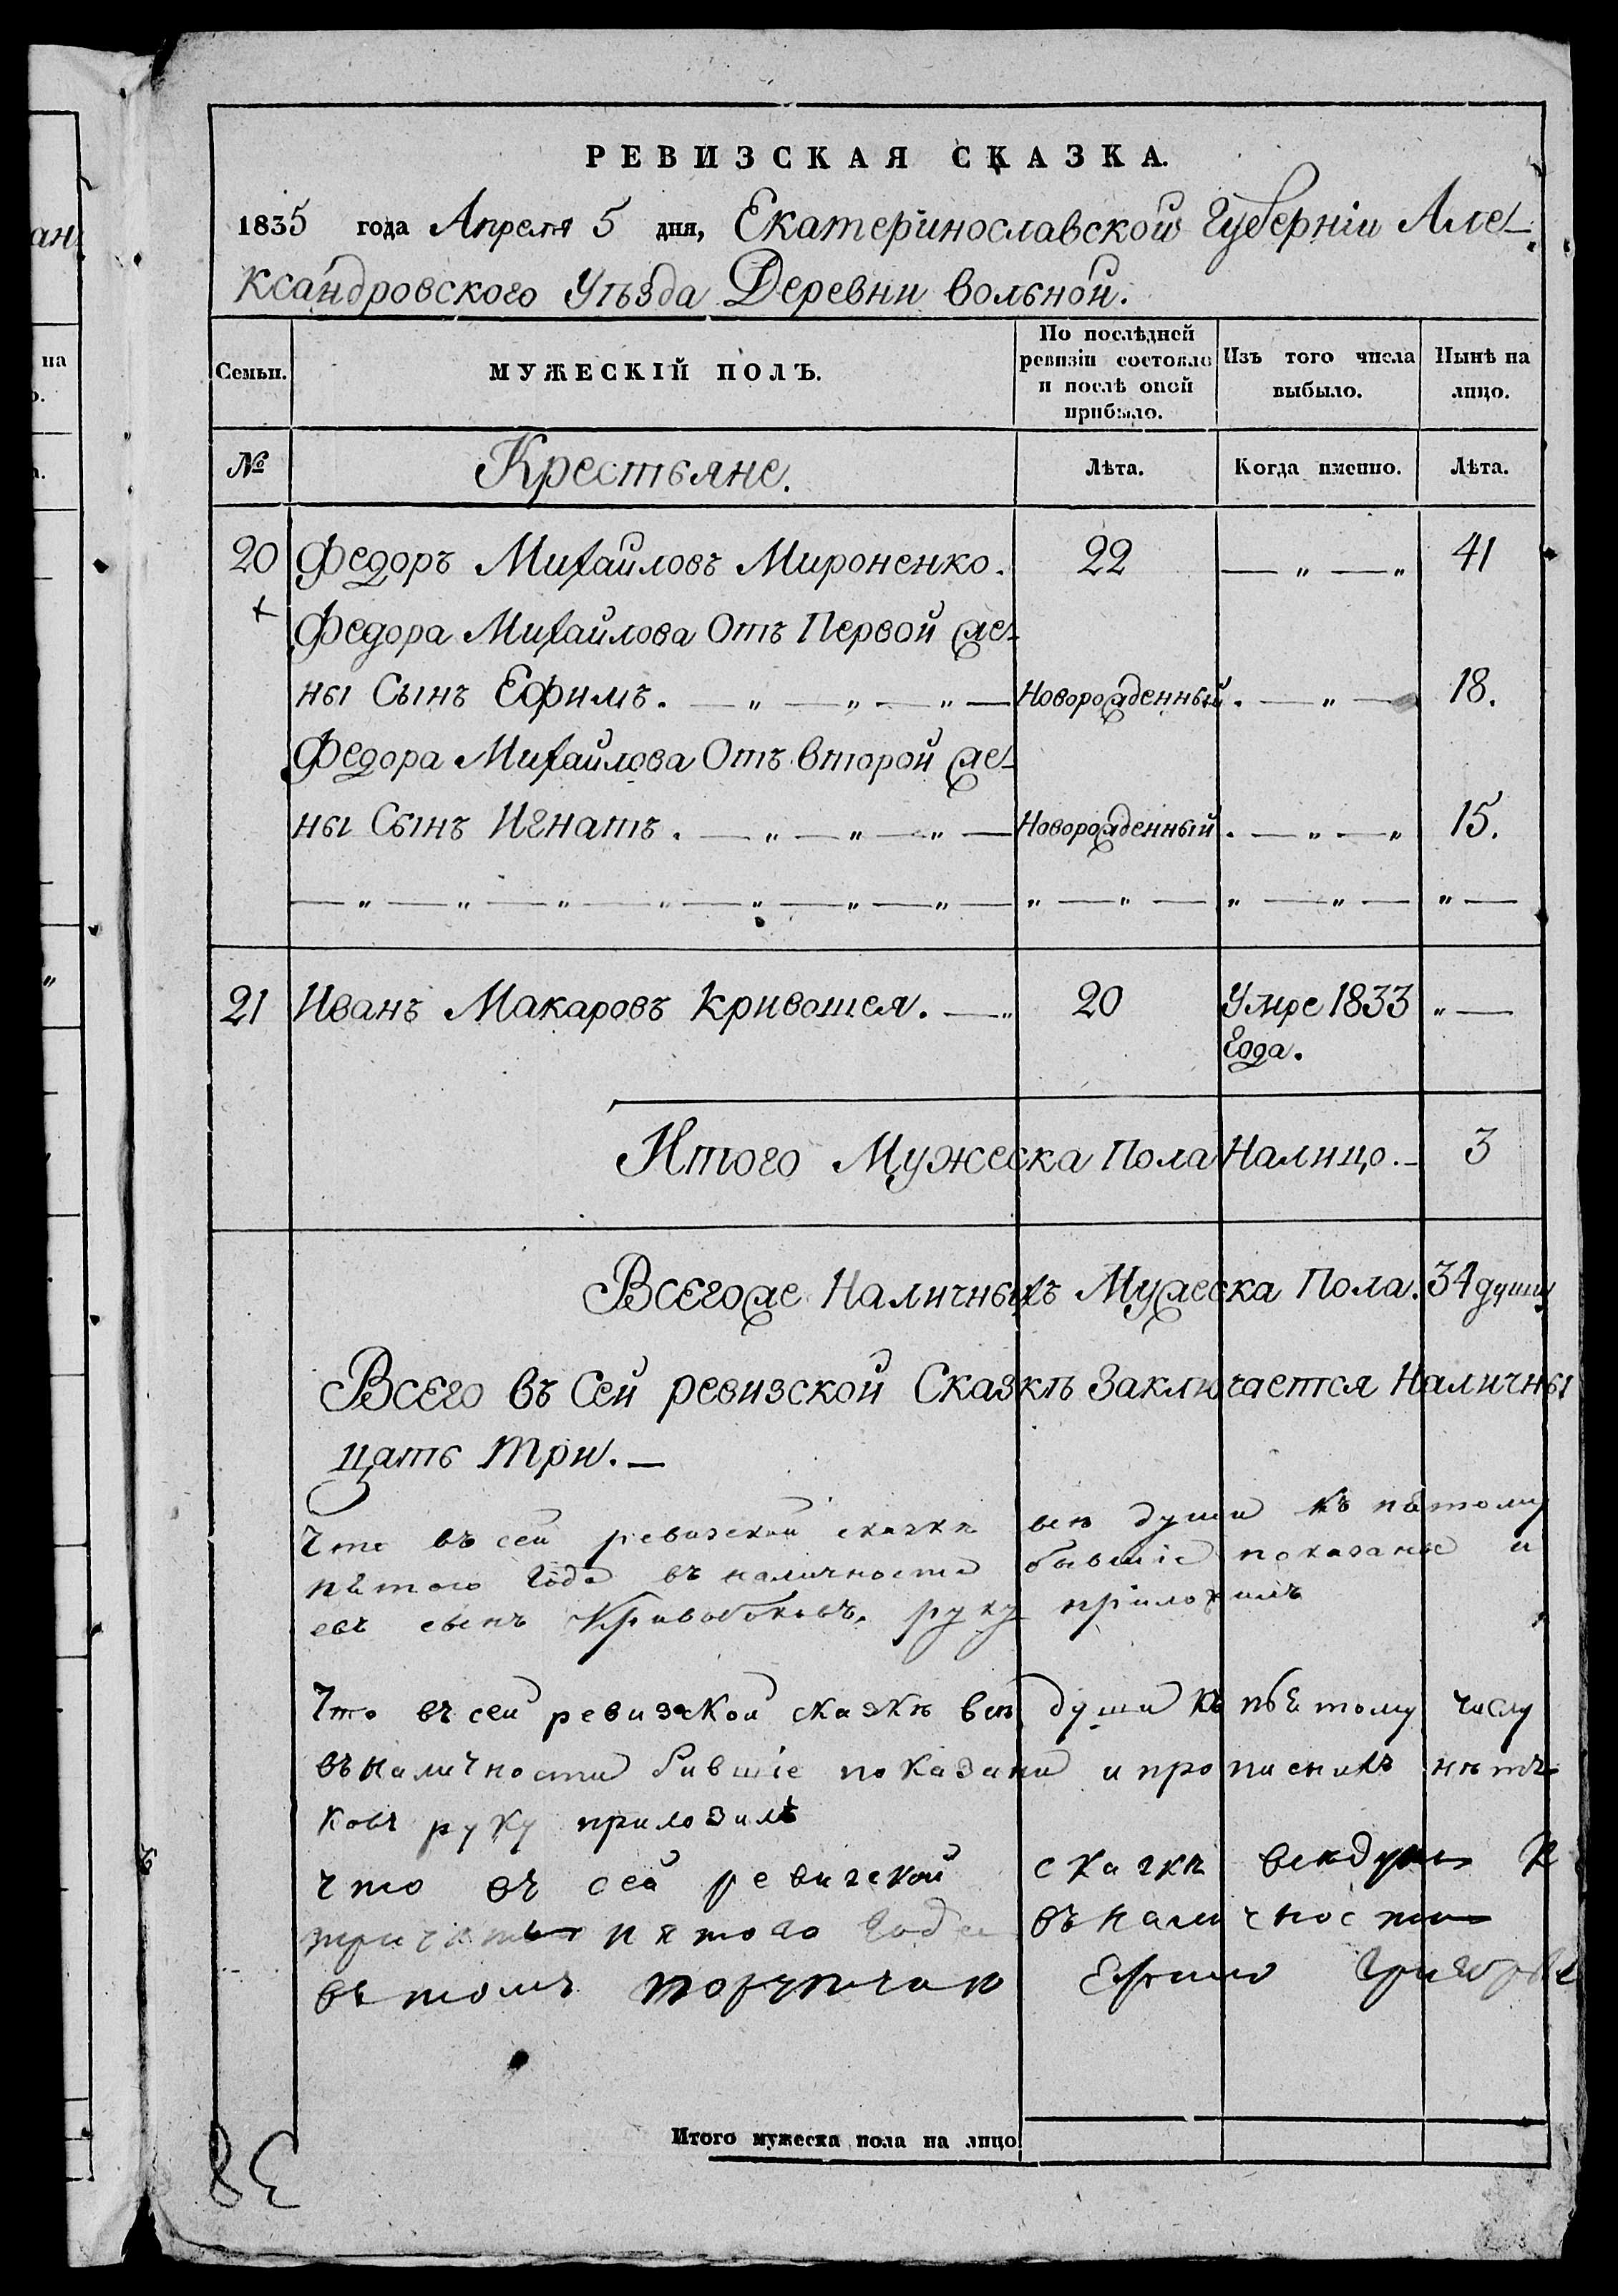 РЕВИЗСКАЯ СКАЗКА.
1835 года Апреля 5 дня, Екатеринославской Губерніи Але-
ксандровского Уѣзда Деревни вольной.
Семьи.
МУЖЕСКІЙ ПОЛЪ.
По послѣдней ревизіи состояло и послѣ оной прибыло.
Изъ того числа выбыло.
Нынѣ на лицо.
№ Крестьяне. Лѣта. Когда именно. Лѣта.
20 Федоръ Михайловъ Мироненко. 22 — „ — „ 41
Федора Михайлова Отъ Первой же-
ны Сынъ Ефимъ. — „ — „ — „ — Новорожденный. — „ — 18.
Федора Михайлова Отъ второй же-
ны Сынъ Игнатъ. — „ — „ — „ — Новорожденный. — „ — „ 15.
— „ — „ — „ — „ — „ — „ — „ — „ — „ — „ — „ — „ —
21 Иванъ Макаровъ Кривошея. — „ 20 Умре 1833 „ —
Года.
Итого Мужеска Пола Налицо. — 3
Всегоже Наличныхъ Мужеска Пола. 34 душы
Всего въ Сей ревизской Сказкѣ Заключается Наличны
цать три. —
Что въ сей ревизской сказкѣ всѣ души къ пятому
пятого Года въ наличности бывшіе показаны и
евъ сынъ Кривобоковъ, руку приложилъ
Что въ сей ревизской сказкѣ всѣ души къ пятому числу
въ наличности бывшіе показани и прописнихъ нѣтъ
ковъ руку приложилъ
что въ сей ревизской сказкѣ всѣ души К
тричать пятого Года въ наличности
въ томъ
Итого мужеска пола на лицо
38